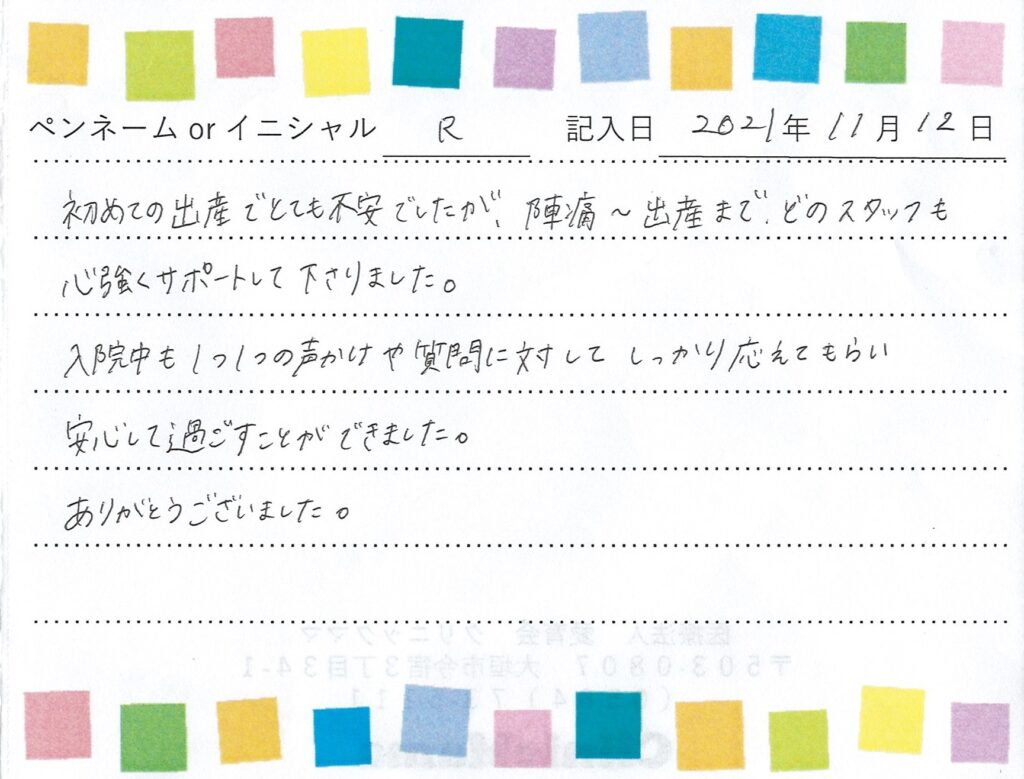 ペンネーム or イニシャル R 記入日 2021年 11月 12日
初めての出産でとても不安でしたが、陣痛～出産まで、どのスタッフも
心強くサポートして下さりました。
入院中も1つ1つの声かけや質問に対してしっかり応えてもらい
安心して過ごすことができました。
ありがとうございました。
医療法人 愛育会 クリニックママ
〒503-0807 大垣市今宿3丁目34-1